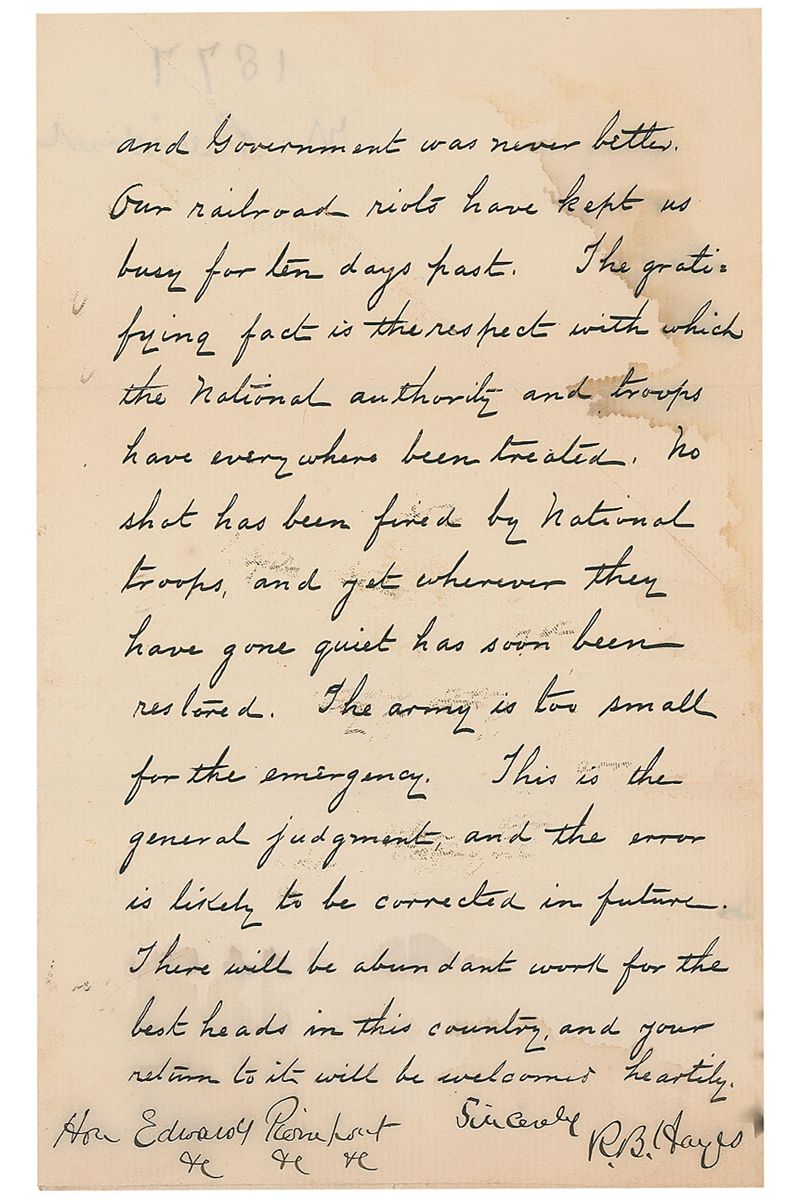 and Government was never better.
Our railroad riots have kept us
busy for ten days past. The grati=
fying fact is the respect with which
the National authority and troops
have everywhere been treated. No
shot has been fired by National
troops, and yet wherever they
have gone quiet has soon been
restored. The army is too small
for the emergency. This is the
general judgment, and the error
is likely to be corrected in future.
There will be abundant work for the
best heads in this country, and your
return to it will be welcomed heartily.
Sincerely
R.B. Hayes
Hon Edwards Pierrepont
&c &c &c
1877